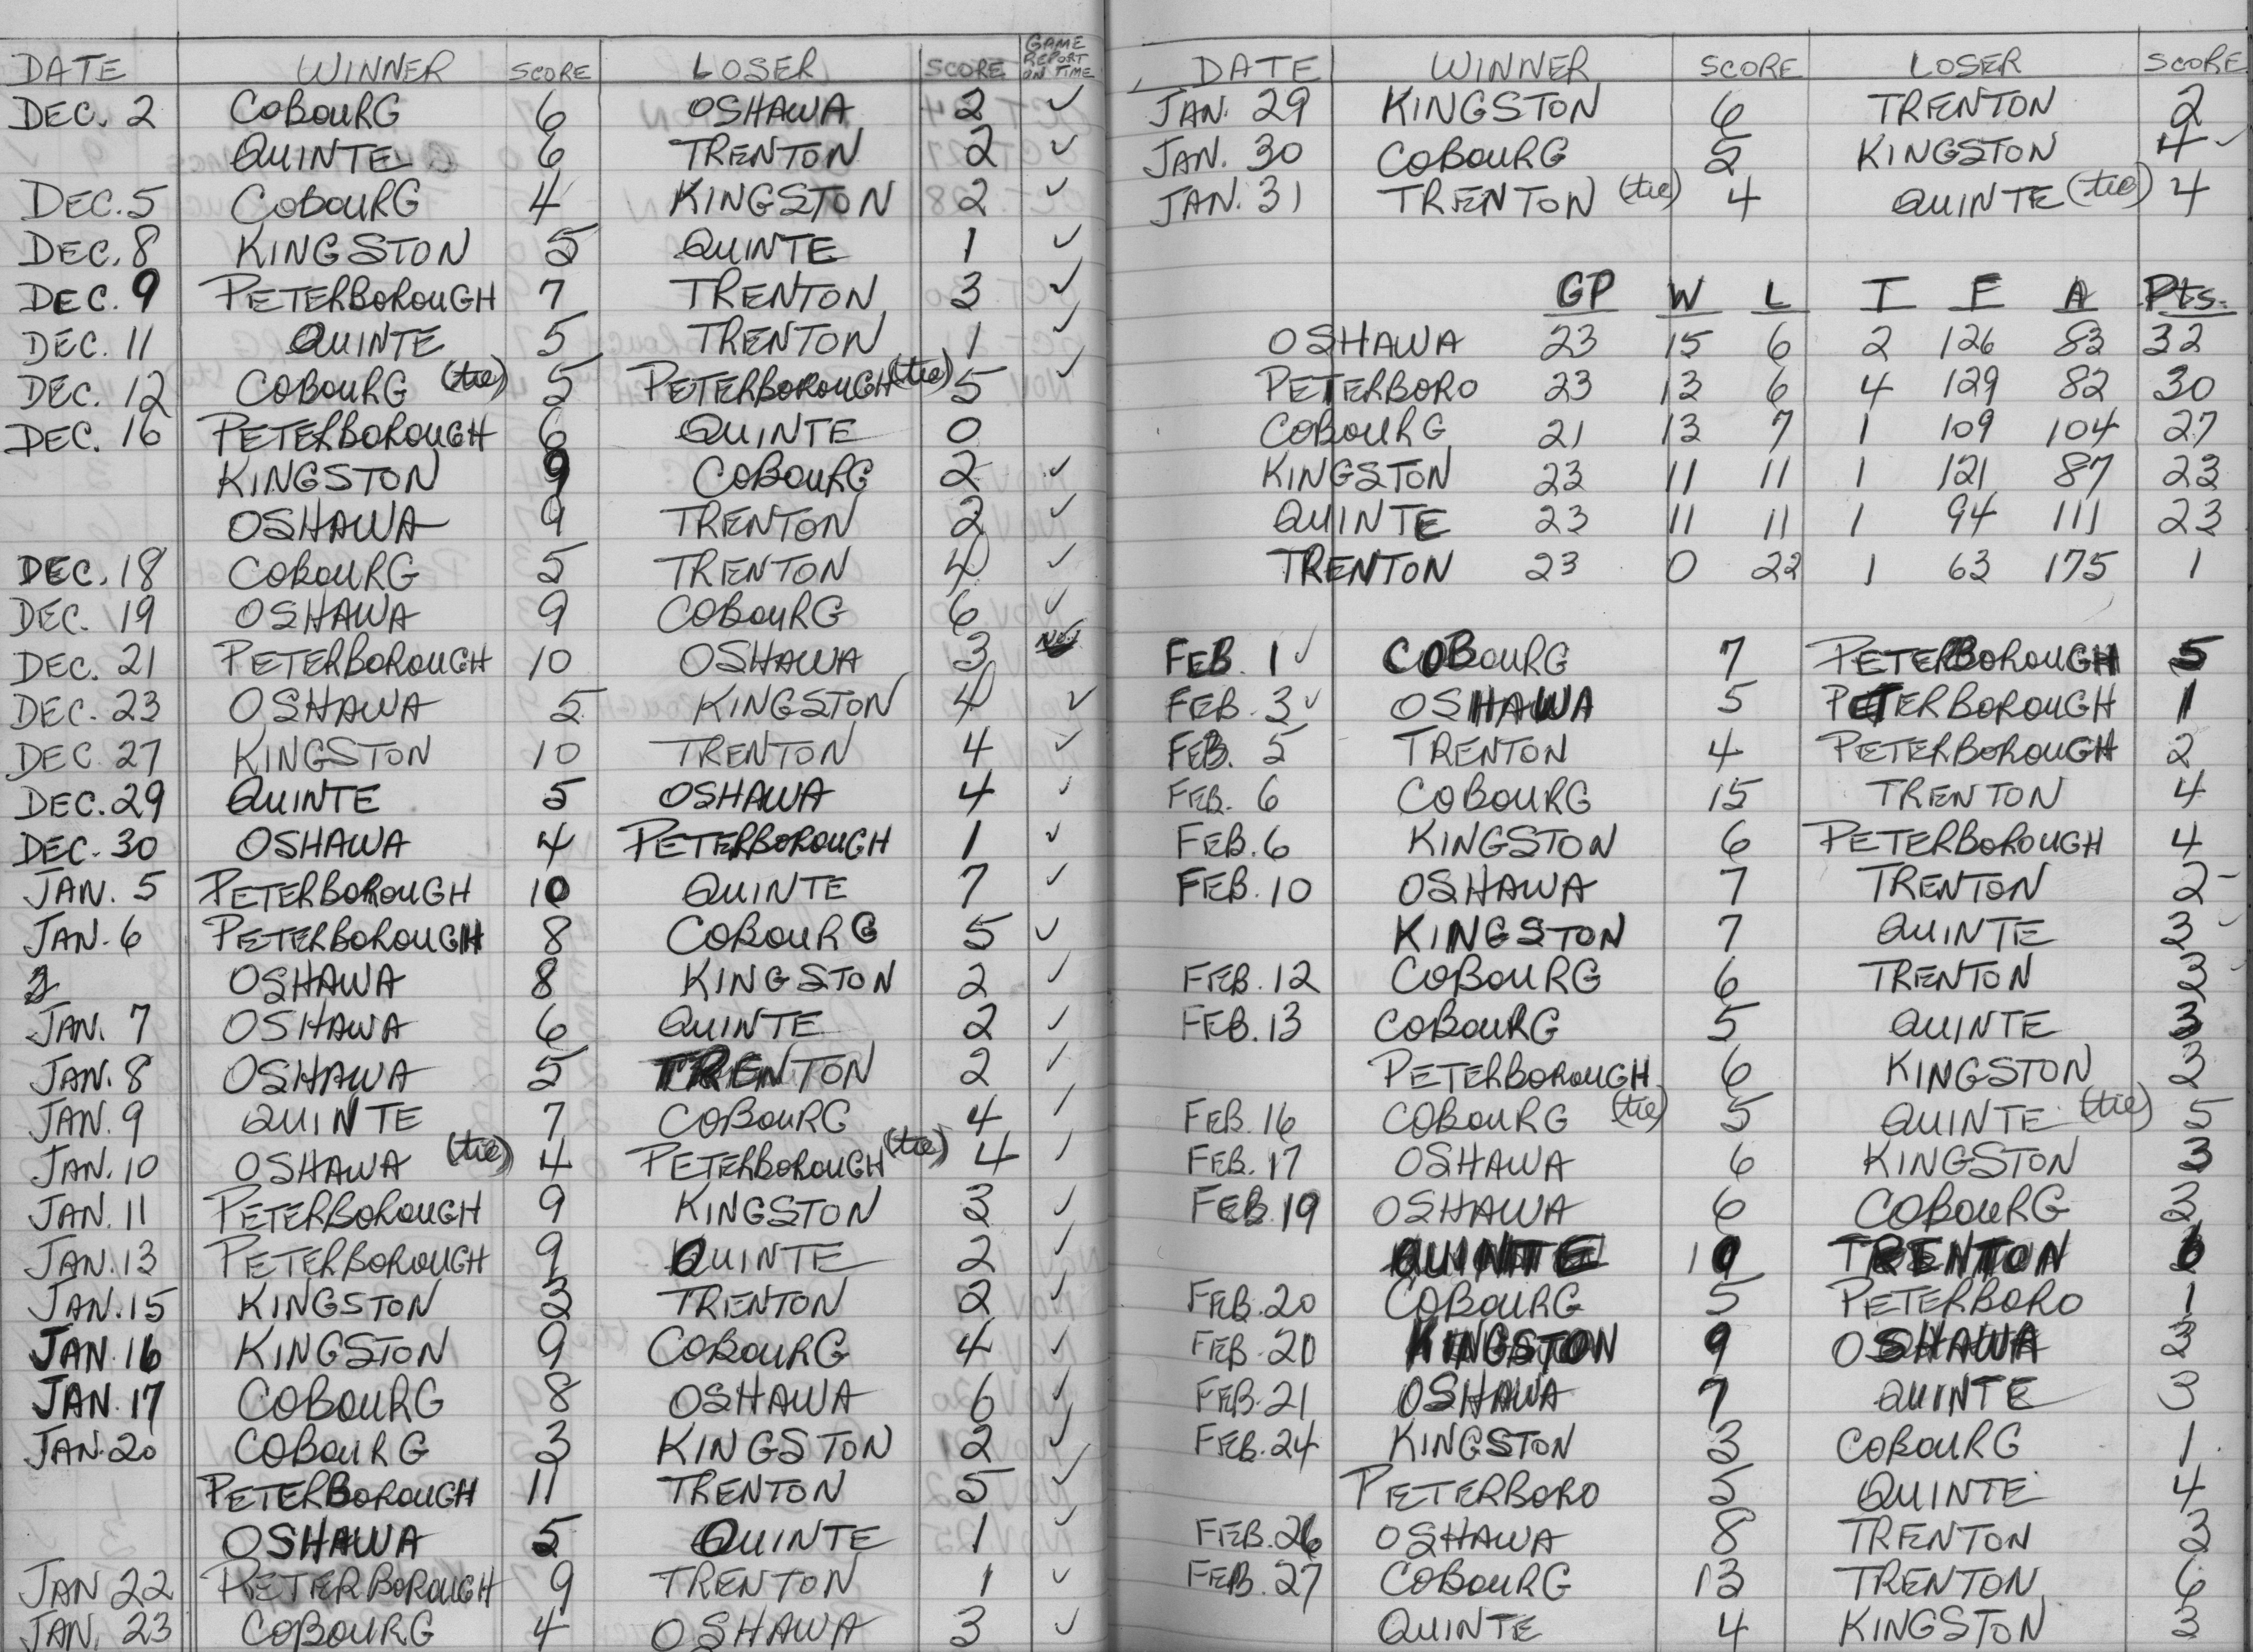 DATE WINNER SCORE LOSER SCORE GAME REPORT ON TIME
DEC. 2 COBOURG 6 OSHAWA 2 ✓
QUINTE 6 TRENTON 2 ✓
DEC. 5 COBOURG 4 KINGSTON 2 ✓
DEC. 8 KINGSTON 5 QUINTE 1 ✓
DEC. 9 PETERBOROUGH 7 TRENTON 3 ✓
DEC. 11 QUINTE 5 TRENTON 1 ✓
DEC. 12 COBOURG (tie) 5 PETERBOROUGH (tie) 5 ✓
DEC. 16 PETERBOROUGH 6 QUINTE 0
KINGSTON 9 COBOURG 2 ✓
OSHAWA 9 TRENTON 2 ✓
DEC. 18 COBOURG 5 TRENTON 4 ✓
DEC. 19 OSHAWA 9 COBOURG 6 ✓
DEC. 21 PETERBOROUGH 10 OSHAWA 3
DEC. 23 OSHAWA 5 KINGSTON 4 ✓
DEC. 27 KINGSTON 10 TRENTON 4 ✓
DEC. 29 QUINTE 5 OSHAWA 4 ✓
DEC. 30 OSHAWA 4 PETERBOROUGH 1 ✓
JAN. 5 PETERBOROUGH 10 QUINTE 7 ✓
JAN. 6 PETERBOROUGH 8 COBOURG 5 ✓
OSHAWA 8 KINGSTON 2 ✓
JAN. 7 OSHAWA 6 QUINTE 2 ✓
JAN. 8 OSHAWA 5 TRENTON 2 ✓
JAN. 9 QUINTE 7 COBOURG 4 ✓
JAN. 10 OSHAWA (tie) 4 PETERBOROUGH (tie) 4 ✓
JAN. 11 PETERBOROUGH 9 KINGSTON 3 ✓
JAN. 13 PETERBOROUGH 9 QUINTE 2 ✓
JAN. 15 KINGSTON 3 TRENTON 2 ✓
JAN. 16 KINGSTON 9 COBOURG 4 ✓
JAN. 17 COBOURG 8 OSHAWA 6 ✓
JAN. 20 COBOURG 3 KINGSTON 2 ✓
PETERBOROUGH 11 TRENTON 5 ✓
OSHAWA 5 QUINTE 1 ✓
JAN 22 PETERBOROUGH 9 TRENTON 1 ✓
JAN. 23 COBOURG 4 OSHAWA 3 ✓
DATE WINNER SCORE LOSER SCORE
JAN. 29 KINGSTON 6 TRENTON 2
JAN. 30 COBOURG 5 KINGSTON 4 ✓
JAN. 31 TRENTON (tie) 4 QUINTE (tie) 4
GP W L T F A Pts.
OSHAWA 23 15 6 2 126 83 32
PETERBORO 23 13 6 4 129 82 30
COBOURG 21 13 7 1 109 104 27
KINGSTON 23 11 11 1 121 87 23
QUINTE 23 11 11 1 94 111 23
TRENTON 23 0 22 1 63 175 1
FEB. 1 ✓ COBOURG 7 PETERBOROUGH 5
FEB. 3 ✓ OSHAWA 5 PETERBOROUGH 1
FEB. 5 TRENTON 4 PETERBOROUGH 2
FEB. 6 COBOURG 15 TRENTON 4
FEB. 6 KINGSTON 6 PETERBOROUGH 4
FEB. 10 OSHAWA 7 TRENTON 2
KINGSTON 7 QUINTE 3
FEB. 12 COBOURG 6 TRENTON 3
FEB. 13 COBOURG 5 QUINTE 3
PETERBOROUGH 6 KINGSTON 3
FEB. 16 COBOURG (tie) 5 QUINTE (tie) 5
FEB. 17 OSHAWA 6 KINGSTON 3
FEB. 19 OSHAWA 6 COBOURG 3
QUINTE TRENTON
FEB. 20 COBOURG 5 PETERBORO 1
FEB. KINGSTON 9 OSHAWA 3
FEB. 21 OSHAWA 7 QUINTE 3
FEB. 24 KINGSTON 3 COBOURG 1
PETERBORO 5 QUINTE 4
FEB. 26 OSHAWA 8 TRENTON 3
FEB. 27 COBOURG 13 TRENTON 6
QUINTE 4 KINGSTON 3